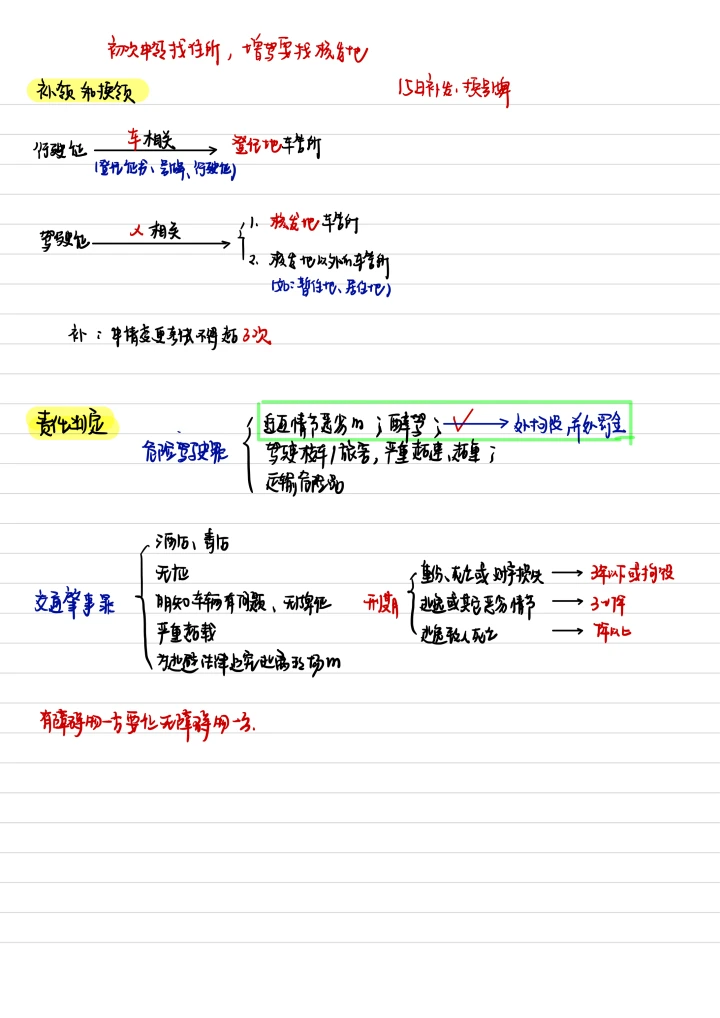 初次申领找住所，增驾要找核发地
补领和换领
15日补发、换号牌
行驶证 车相关 登记地车管所
(登记证书、号牌、行驶证)
驾驶证 人相关
1. 核发地车管所
2. 核发地以外的车管所
(如：暂住地、居住地)
补：申请变更考试不得超3次
责任判定
危险驾驶罪
追逐情节恶劣的；醉驾；✓ → 处拘役,并处罚金
驾驶校车/旅客，严重超速、超乘；
运输危险品
交通肇事罪
酒后、毒后
无证
明知车辆有问题、无牌证
严重超载
为逃避法律追究逃离现场的
刑期
重伤、死亡或财产损失 → 3年以下或拘役
逃逸或其它恶劣情节 → 3-7年
逃逸致人死亡 → 7年以上
有障碍的一方要让无障碍的一方.